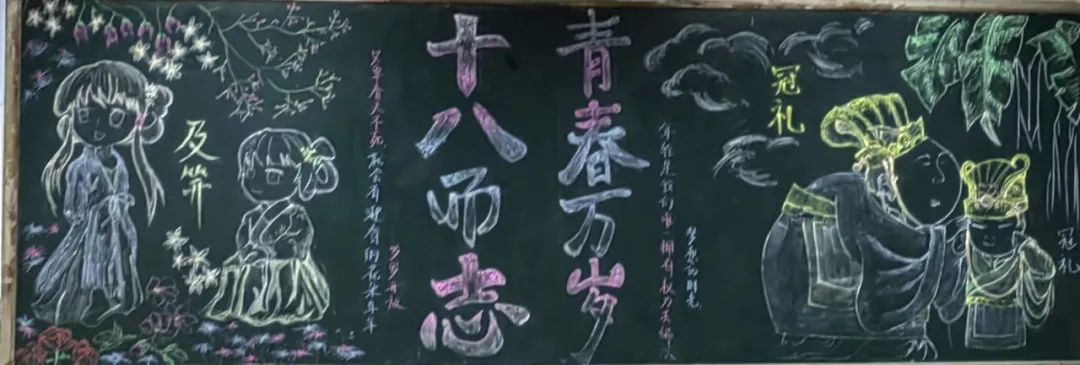 及笄
十八而志
青春万岁
年轻是我们唯一拥有权力去编织
梦想的时光
冠礼
冠礼